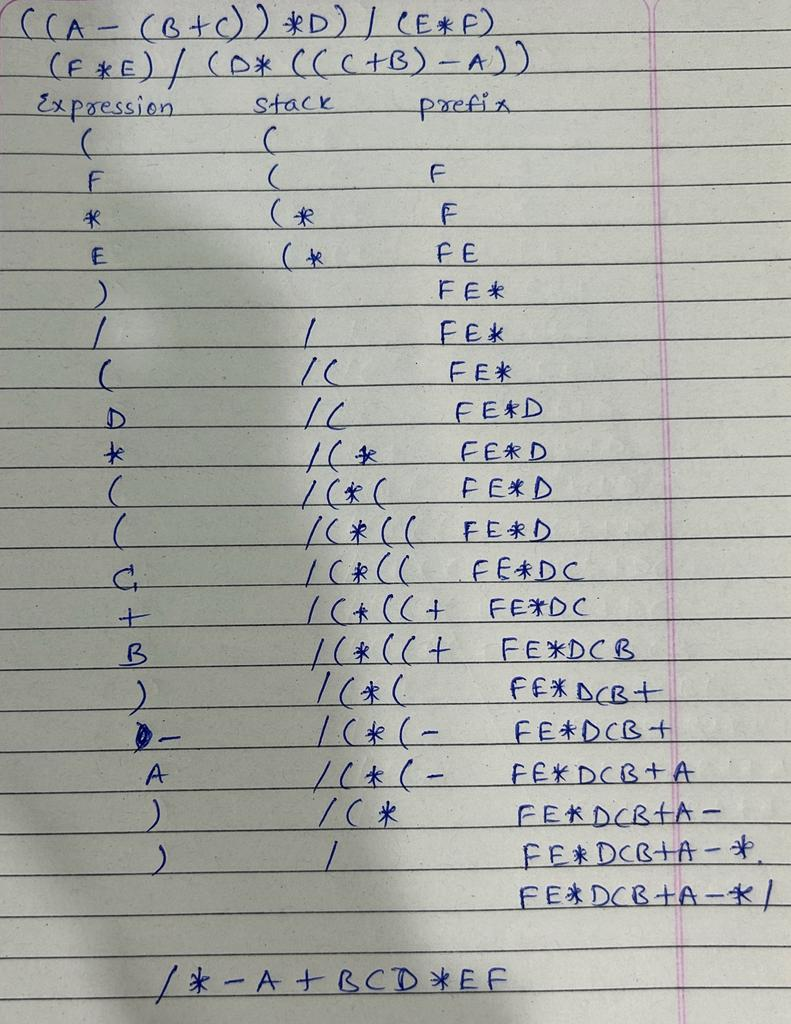 ((A - (B+C)) *D) / (E*F)
(F*E) / (D* ((C+B) - A))
Expression stack prefix
( (
F ( F
* (* F
E (* FE
) FE*
/ / FE*
( /( FE*
D /( FE*D
* /(* FE*D
( /(*( FE*D
( /(*(( FE*D
C /(*(( FE*DC
+ /(*((+ FE*DC
B /(*((+ FE*DCB
) /(*( FE*DCB+
- /(*(- FE*DCB+
A /(*(- FE*DCB+A
) /(* FE*DCB+A-
) / FE*DCB+A-*.
FE*DCB+A-*/
/*-A+BCD*EF